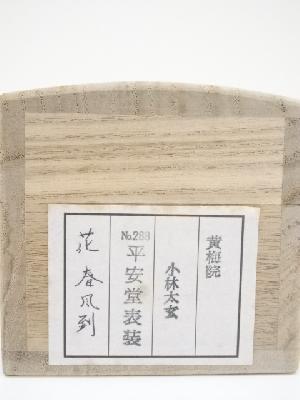 黄梅院
小林太玄
No.288 平安堂表装
花 春風到